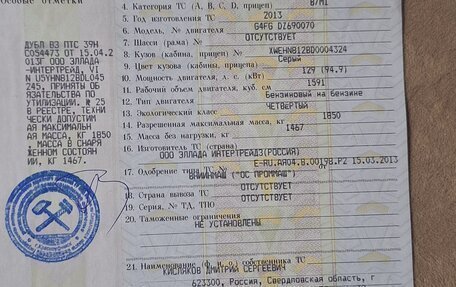 Особые отметки
ДУБЛ ВЗ ПТС 39Н
С054473 ОТ 15.04.2
013Г ООО ЭЛЛАДА
-ИНТЕРТРЕЙД, VI
N U5YHN812BDL045
245, ПРИНЯТЫ ОБ
ЯЗАТЕЛЬСТВА ПО
УТИЛИЗАЦИИ. № 25
В РЕЕСТРЕ, ТЕХНИ
ЧЕСКИ ДОПУСТИМ
АЯ МАКСИМАЛЬН
АЯ МАССА, КГ 1850
, МАССА В СНАРЯ
ЖЕННОМ СОСТОЯН
ИИ, КГ 1467.
4. Категория ТС (А, В, С, D, прицеп) В/М1
5. Год изготовления ТС 2013
6. Модель, № двигателя G4FG DZ690070
7. Шасси (рама) № ОТСУТСТВУЕТ
8. Кузов (кабина, прицеп) № XWEHN812BD0004324
9. Цвет кузова (кабины, прицепа) Серый
10. Мощность двигателя, л. с. (кВт) 129 (94.9)
11. Рабочий объем двигателя, куб. см 1591
12. Тип двигателя Бензиновый на бензине
13. Экологический класс ЧЕТВЕРТЫЙ
14. Разрешенная максимальная масса, кг 1850
15. Масса без нагрузки, кг 1467
16. Изготовитель ТС (страна)
ООО ЭЛЛАДА ИНТЕРТРЕЙД(РОССИЯ)
17. Одобрение типа ТС № E-RU.АЯ04.B.00198.P2 15.03.2013
ВНИИНМАШ ("ОС ПРОММАШ")
18. Страна вывоза ТС ОТСУТСТВУЕТ
19. Серия, № ТД, ТПО ОТСУТСТВУЕТ
20. Таможенные ограничения
НЕ УСТАНОВЛЕНЫ
21. Наименование (ф. и. о.) собственника ТС
КИСЛЯКОВ ДМИТРИЙ СЕРГЕЕВИЧ
623300, Россия, Свердловская область, г